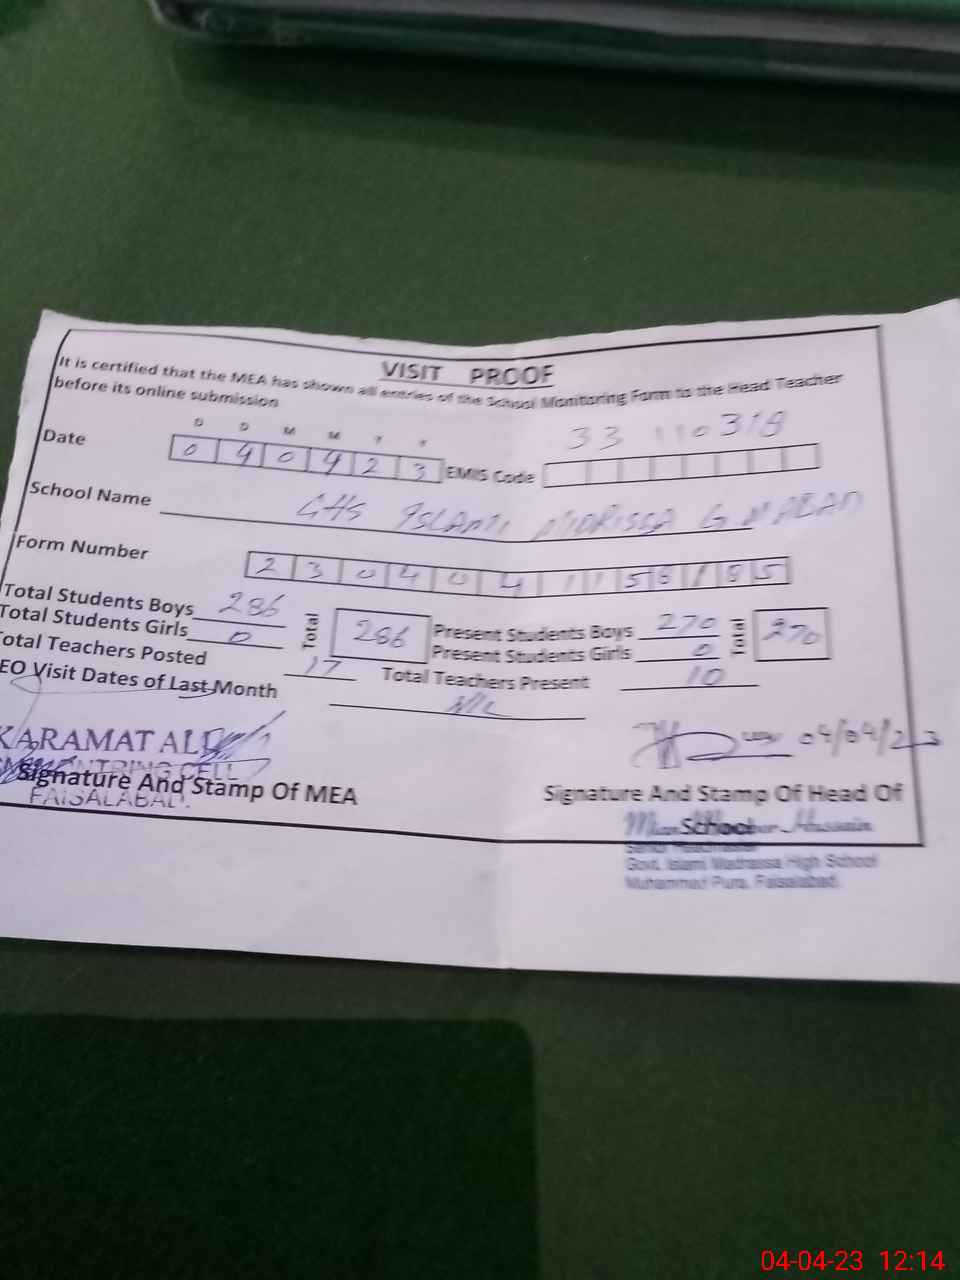 VISIT PROOF
It is certified that the MEA has shown all entries of the School Monitoring Form to the Head Teacher
before its online submission
D D M M Y Y
Date 0 4 0 4 2 3 EMIS Code 33110318
School Name GHS ISLAMI
Form Number 2 3 0 4 0 4 1 1 5 8 1 8 5
Total Students Boys 286 Total 286 Present Students Boys 270 Total 270
Total Students Girls 0 Present Students Girls 0
otal Teachers Posted 17 Total Teachers Present 10
EO Visit Dates of Last Month Nil
04/04/23
KARAMAT ALI
CELL
Signature And Stamp Of MEA Signature And Stamp Of Head Of
FAISALABAD.
School Hussain
Govt. Islami Madrassa High School
Muhammad Pura, Faisalabad.
04-04-23 12:14